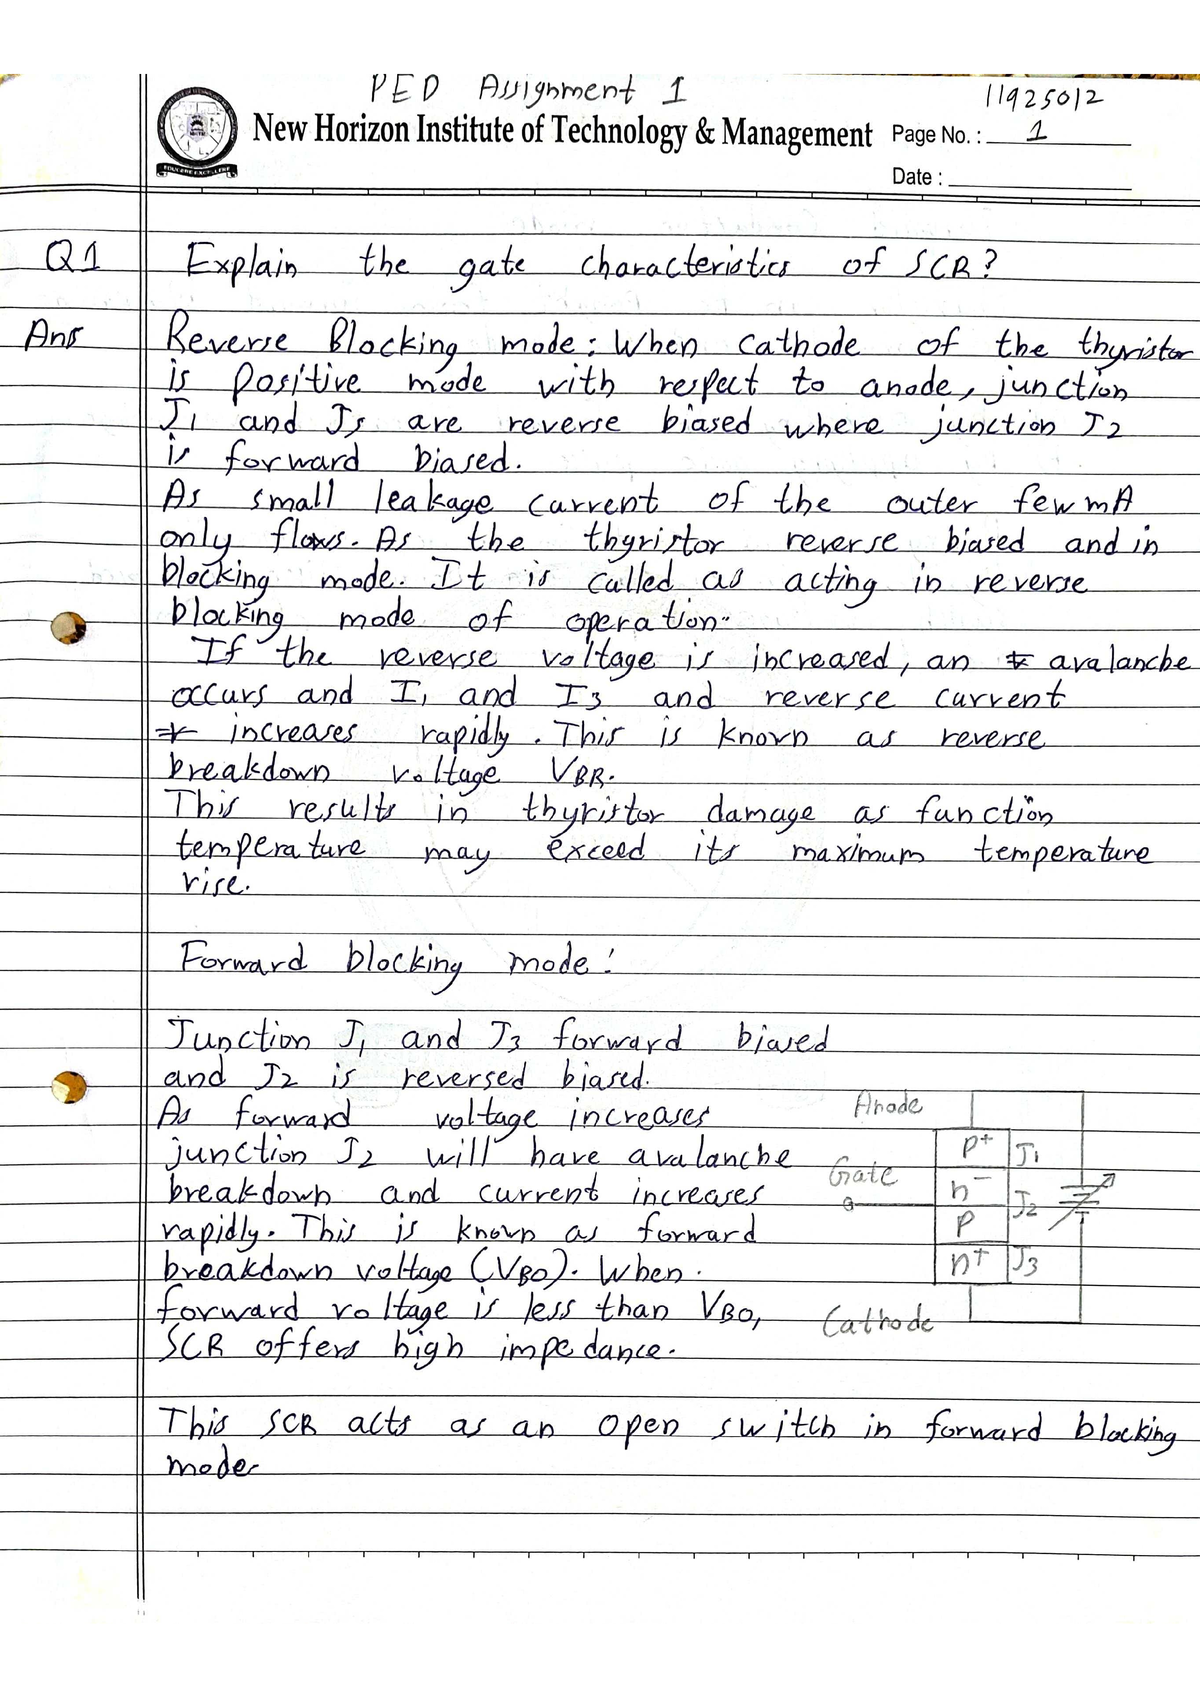 PED Assignment 1
11925012
New Horizon Institute of Technology & Management
Page No. : 1
Date :
EDUCERE EXCELLERE
Q1 Explain the gate characteristics of SCR?
Ans Reverse Blocking mode: When cathode of the thyristor
is positive mode with respect to anode, junction
J1 and Js are reverse biased where junction J2
is forward biased.
As small leakage current of the outer few mA
only flows. As the thyristor reverse biased and in
blocking mode. It is called as acting in reverse
blocking mode of operation.
If the reverse voltage is increased, an avalanche
occurs and I1 and I3 and reverse current
increases rapidly. This is known as reverse
breakdown voltage VBR.
This results in thyristor damage as function
temperature may exceed its maximum temperature
rise.
Forward blocking mode:
Junction J1 and J3 forward biased
and J2 is reversed biased.
As forward voltage increases
junction J2 will have avalanche
breakdown and current increases
rapidly. This is known as forward
breakdown voltage (VBO). When
forward voltage is less than VBO,
SCR offers high impedance.
Anode
p+ J1
Gate
n- J2
p
n+ J3
Cathode
This SCR acts as an open switch in forward blocking
mode